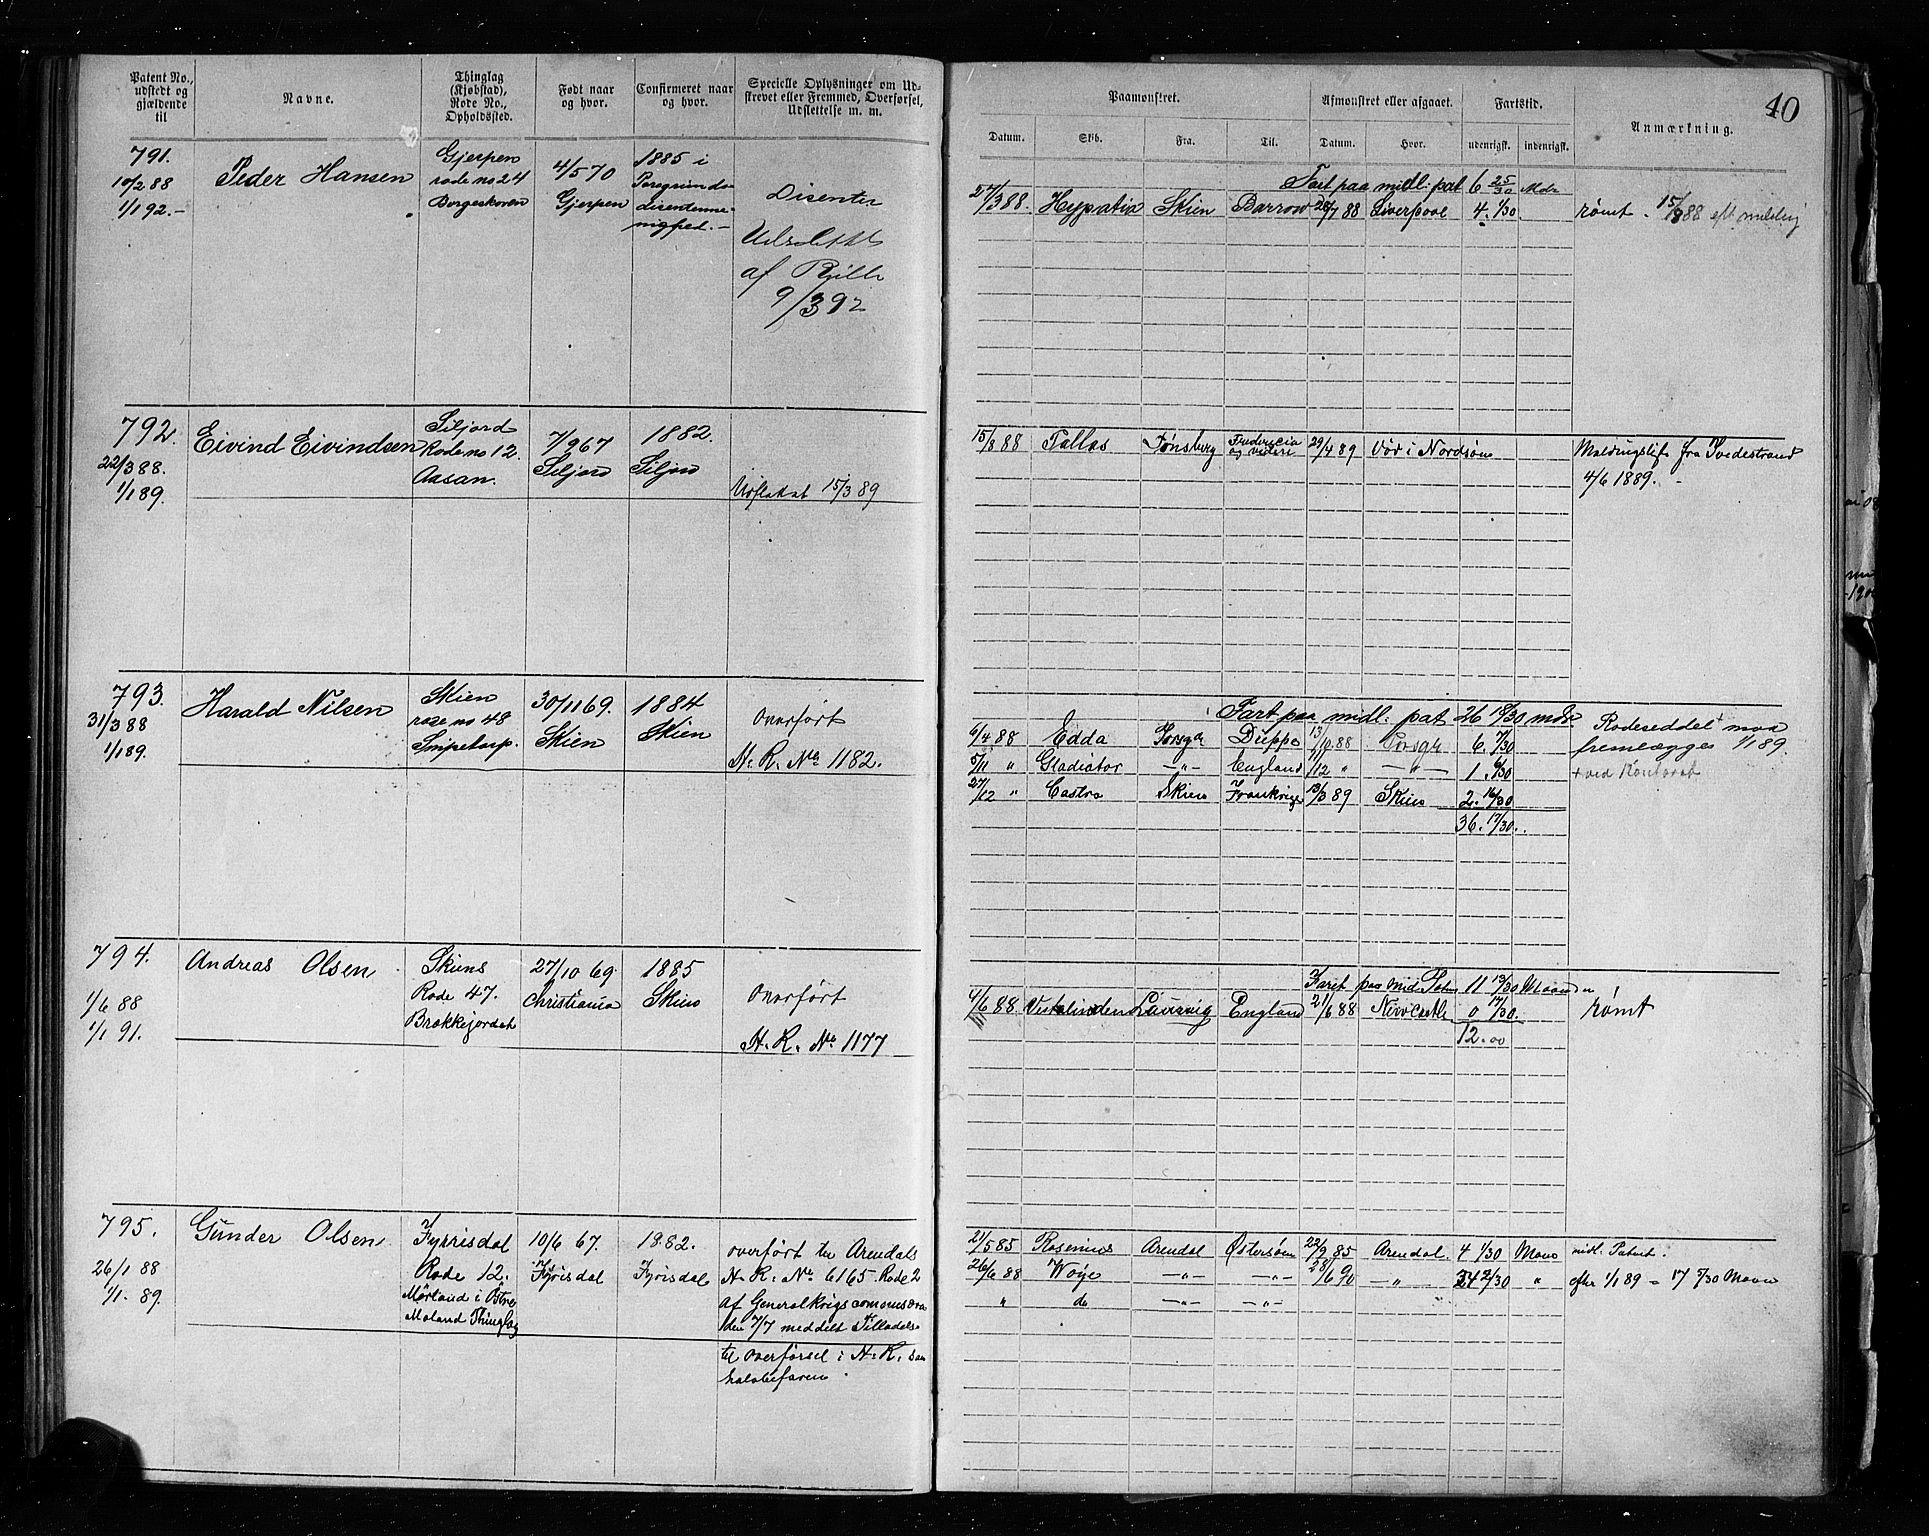 Patent No., udstedt og gjældende til
Navne.
Thinglag (Kjøbstad), Rode No., Opholdssted.
Født naar og hvor.
Confirmeret naar og hvor.
Specielle Oplysninger om Udskrevet eller Fremmed, Overførsel, Udslettelse m. m.
Paamønstret.
Afmønstret eller afgaaet.
Fartstid.
Anmærkning.
40
Datum.
Skib.
Fra.
Til.
Datum.
Hvor.
udenrigsk.
indenrigsk.
791.
10/2 88
1/1 92.-
Peder Hansen
Gjerpen
rode no 24
Borgeskoven
4/5 70
Gjerpen
1885 i
Disenter
af Rulle
9/3 92
Fart paa midl. pat 6 25/30 Mdr
27/3 88. Hypatia Skien Barrow 28/7 88 Liverpool 4. 1/30 rømt. 15/8 88 eft melding
792.
22/3 88.
1/1 89.
Eivind Eivindsen
Siljord
Rode no 12.
Aasan.
7/9 67
Siljord
1882.
Siljord
Udslettet 15/3 89
15/8 88 Pallas Tønsberg Fredericia og videre 29/4 89 Død i Nordsøen Meldingsliste fra Tvedestrand
4/6 1889.
793.
31/3 88
1/1 89.
Harald Nilsen
Skien
rode no 48
Snipetorp.
30/11 69.
Skien
1884
Skien
Overført
H. R. No 1182.
Fart paa midl. pat 26 18/30 mdr
6/4 88 Edda Porsgr Dieppe 13/10 88 Porsgr 6. 7/30
5/11 " Gladiator —"— England /12 " —"— 1. 6/30
27/12 " Castro Skien Frankrige 13/3 89 Skien 2. 16/30
36. 17/30.
Rodeseddel + maa
fremlægges 1/1 89.
+ ved Kontoret
794.
1/6 88
1/1 91.
Andreas Olsen
Skiens
Rode 47.
Brekkejordet
27/10 69.
Christiania
1885
Skien
Overført
H. R. No 1177
Fart paa mid. Paten 11 13/30 Maaneder
4/6 88 Vestalinden Laurvig England 21/6 88 Newcastle 0 17/30. rømt
12.00
795.
26/1 88
1/1. 89.
Gunder Olsen
Fyrrisdal
Rode 12.
Mørland i Østre
Moland Thinglag
10/6 67.
Fyrisdal
1882.
Fyrisdal
Overført til Arendals
H. R. No 6165 Rode 2
af Generalkrigscommissæren
den 7/7 meddelt Tilladelse
til overførsel i H. R. som
halvbefaren.
21/5 85 Rosenius Arendal Østersøen 22/9 85 Arendal 4 1/30 Maan midl. Patent.
26/6 88 Woye —"— —"— 28/6 90 —"— 24 2/30 " efter 1/1 89 = 17 5/30 Maan
" do —"— —"—